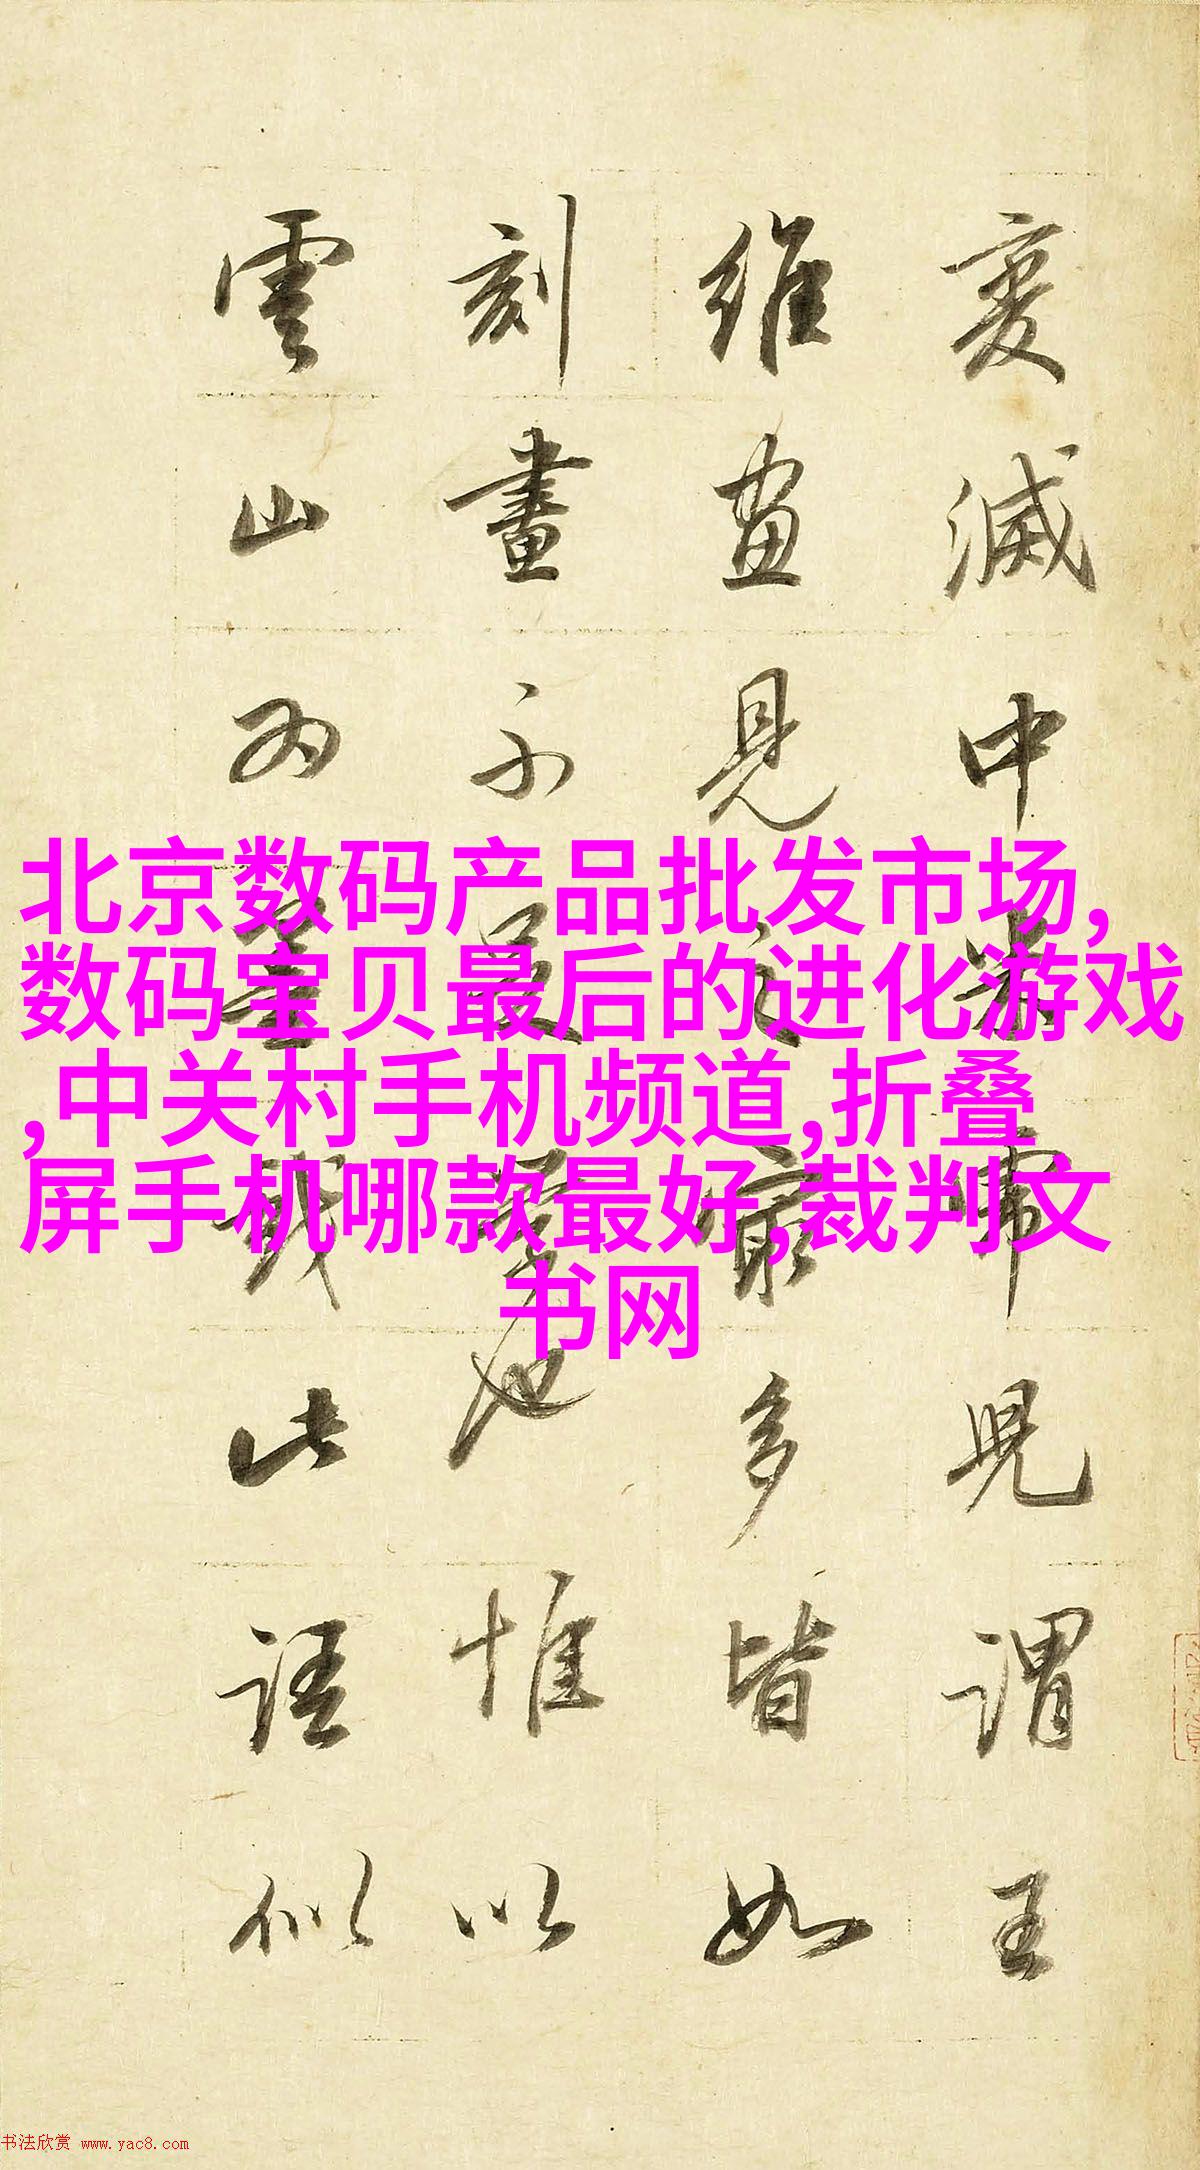 變滅中米虎兒謂王
維畫見之最多皆如
刻畫不足學也惟以
雲山為墨戲此語似
北京数码产品批发市场,
数码宝贝最后的进化游戏
,中关村手机频道,折叠
屏手机哪款最好,裁判文
书网
书法欣赏 www.yac8.com